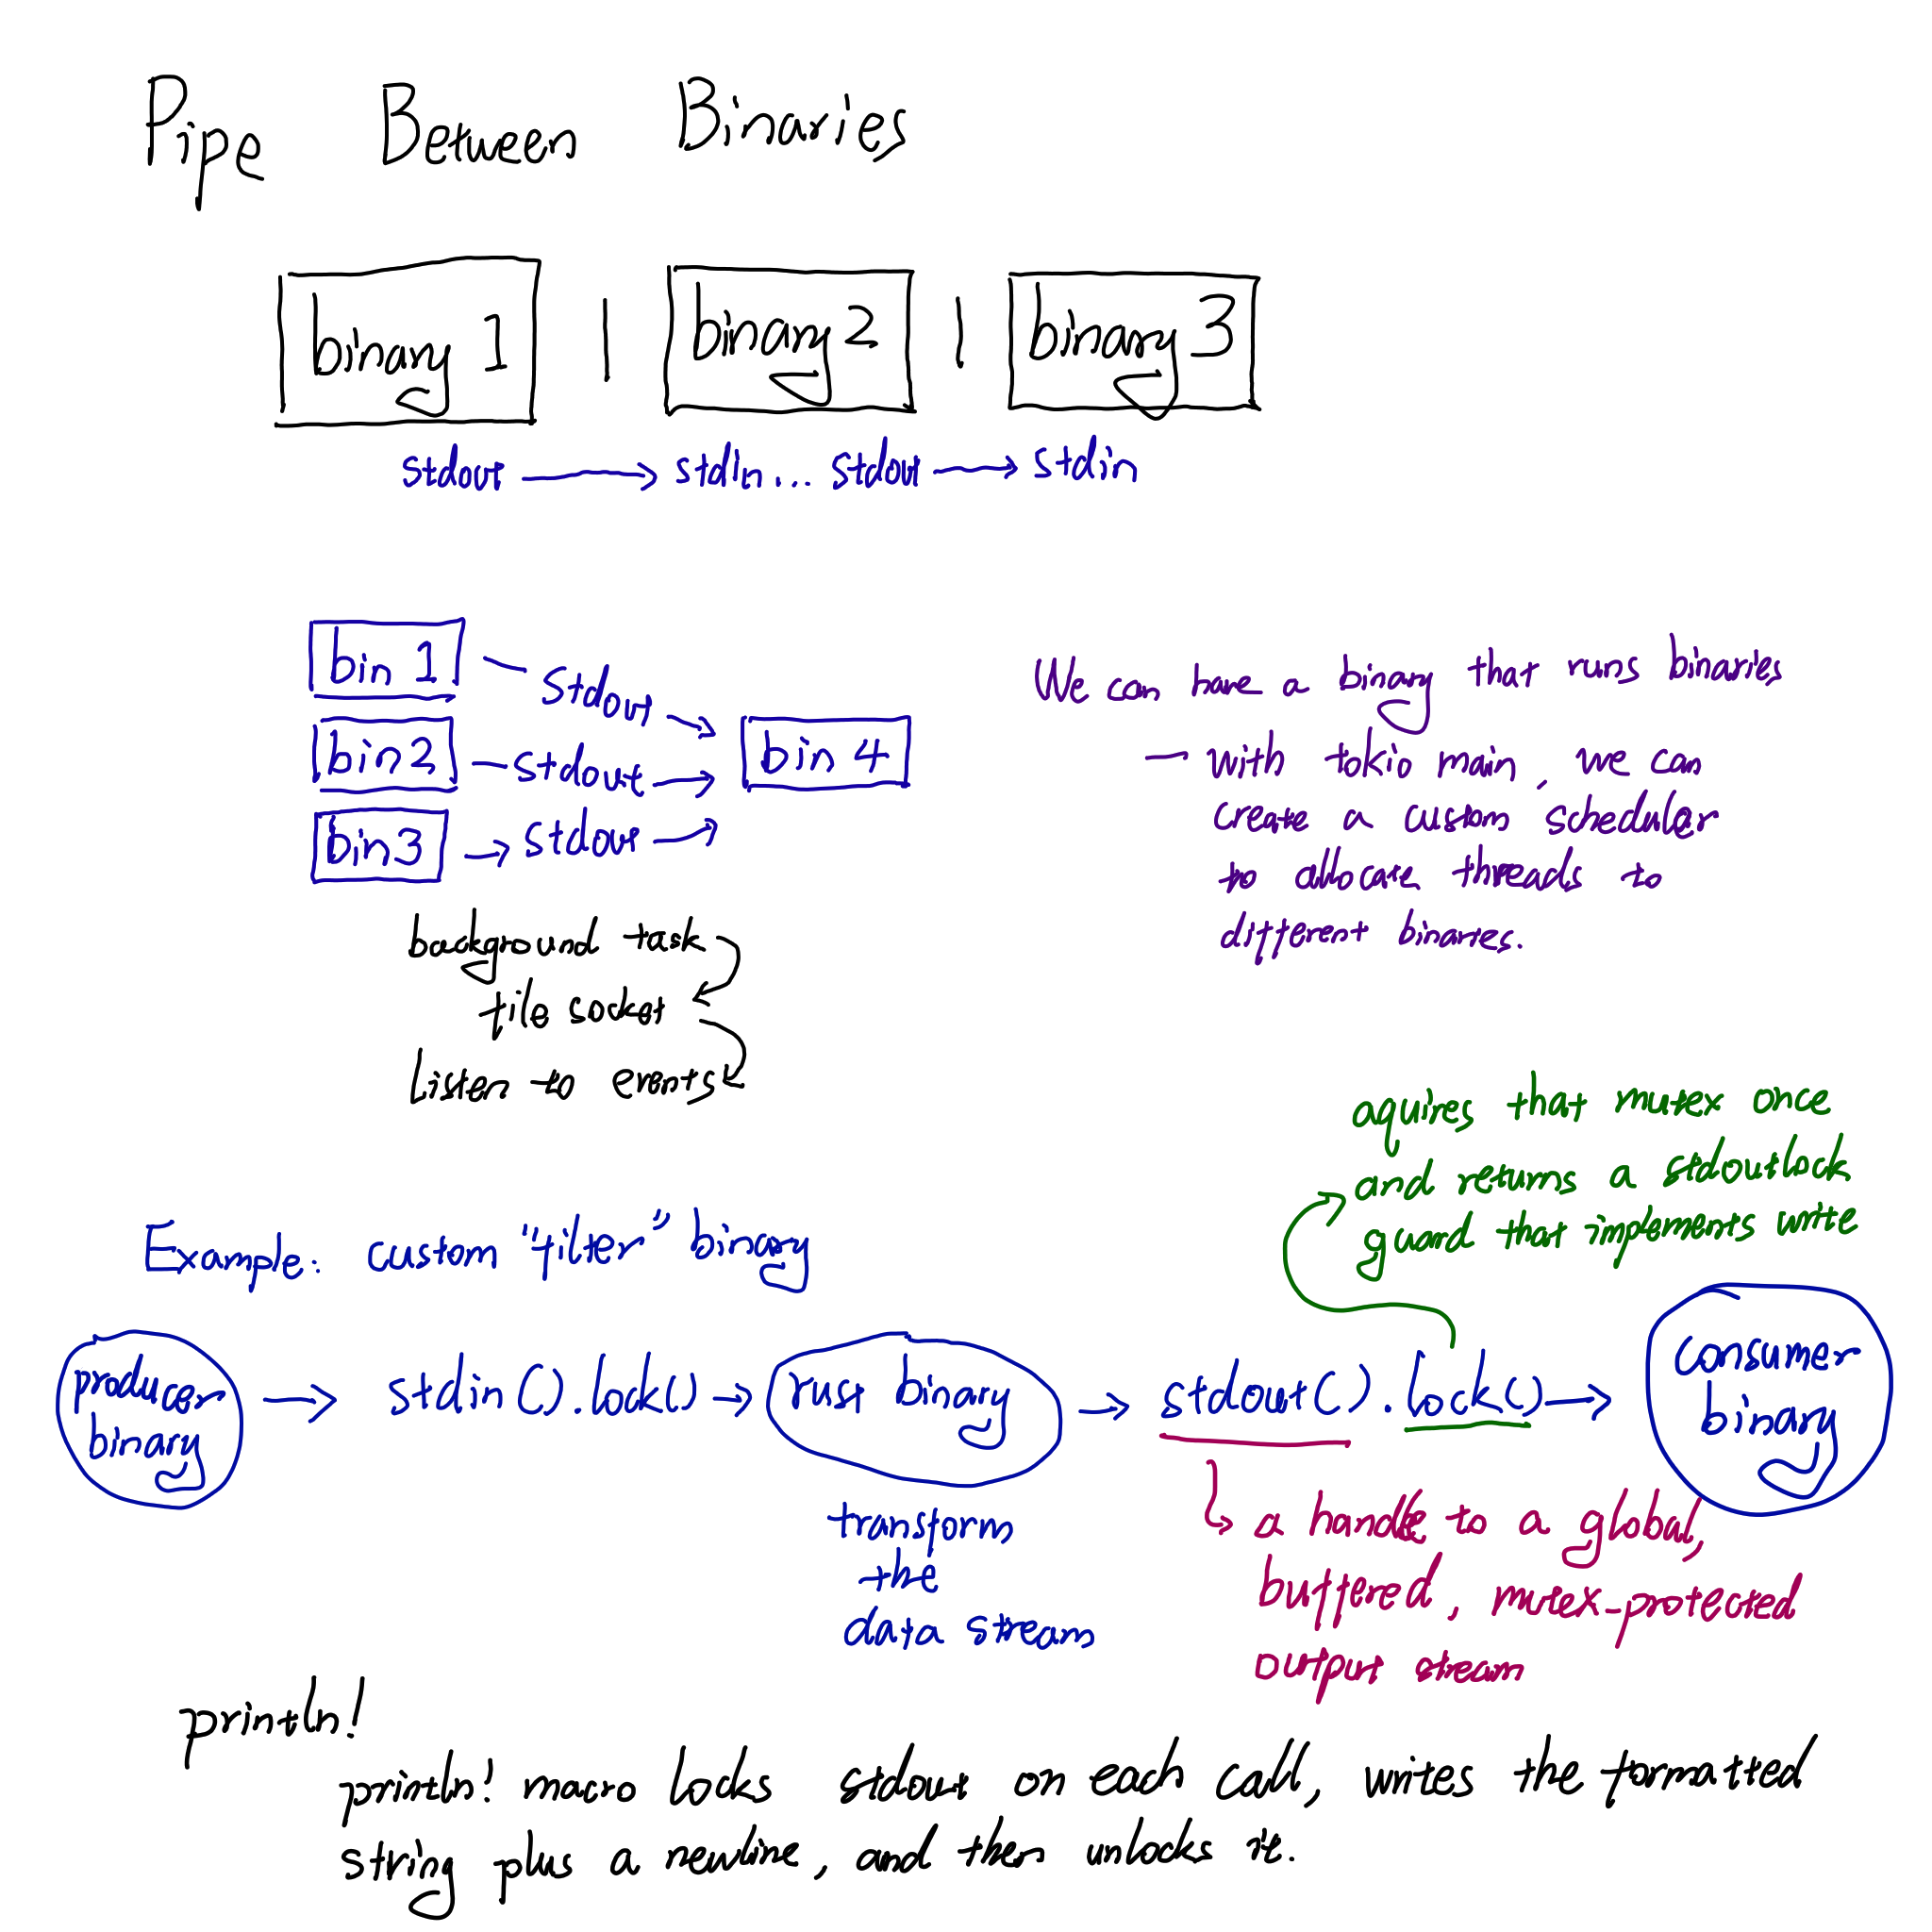 Pipe Between Binaries
binary 1 | binary 2 | binary 3
stdout → stdin... stdout → stdin
bin 1
stdout →
bin 2
stdout →
bin 4
bin 3
→ stdout →
We can have a binary that runs binaries
— with tokio main, we can
create a custom schedular
to allocate threads to
different binaries.
background task
file socket
listen to events
aquires that mutex once
and returns a stdoutlock
guard that implements write
Example: custom "filter" binary
producer
binary
→ stdin().lock() →
rust binary
→ stdout().lock() →
consumer
binary
transform
the
data stream
a handle to a global,
buffered, mutex-protected
output stream
println!
println! macro locks stdout on each call, writes the formatted
string plus a newline, and then unlocks it.